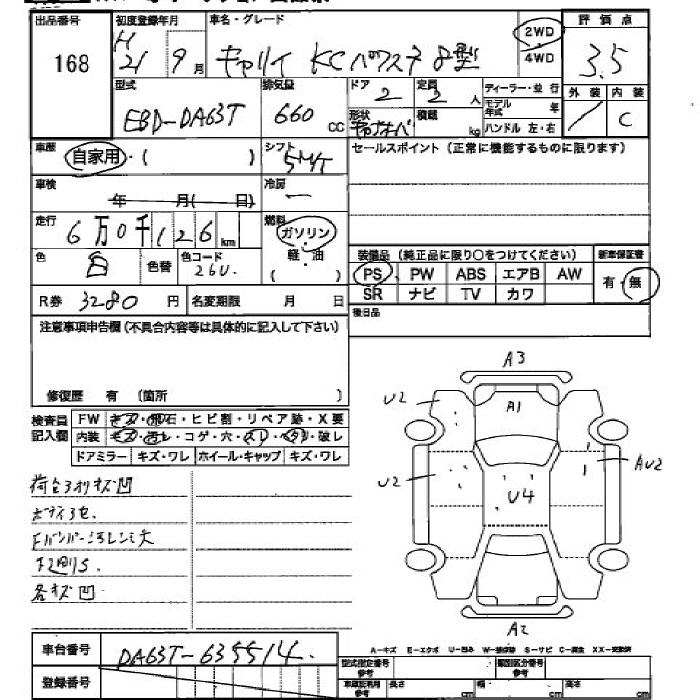 出品番号
168
初度登録年月
H 21 9月
車名・グレード
キャリイ KC パワステ 8型
2WD
4WD
評価点
3.5
型式
EBD-DA63T
排気量
660 CC
ドア
2
定員
2 人
ディーラー・並行
モデル年式 年
ハンドル 左・右
形状
積載 kg
外装 内装
/ C
車歴
自家用・( )
シフト
5MT
セールスポイント (正常に機能するものに限ります)
車検
年 月( 日)
冷房
ー
走行
6万0千126 km
燃料
ガソリン
軽・油
( )
色
白
色替
色コード
26U.
装備品 (純正品に限り○をつけてください)
新車保証書
PS PW ABS エアB AW
SR ナビ TV カワ
有・無
R券 3280 円
名変期限 月 日
後日品
注意事項申告欄 (不具合内容等は具体的に記入して下さい)
修復歴 有 〔箇所 〕
検査員記入欄
FW キズ・飛石・ヒビ割・リペア跡・X要
内装 キズ・汚レ・コゲ・穴・スレ・ヘタリ・破レ
ドアミラー キズ・ワレ ホイール・キャップ キズ・ワレ
荷台アオリキズ凹
ボデイ
Fバンパー
下廻りS
各キズ凹
A3
A1
U2
U2
AU2
U4
A2
車台番号
DA63T-635514.
登録番号
A-キズ E-エクボ U-凹み W-補修跡 S-サビ C-腐食 XX-交換済
型式指定番号
参考
類別区分番号
参考
車庫証明利用
参考
長さ cm
幅 cm
高さ cm